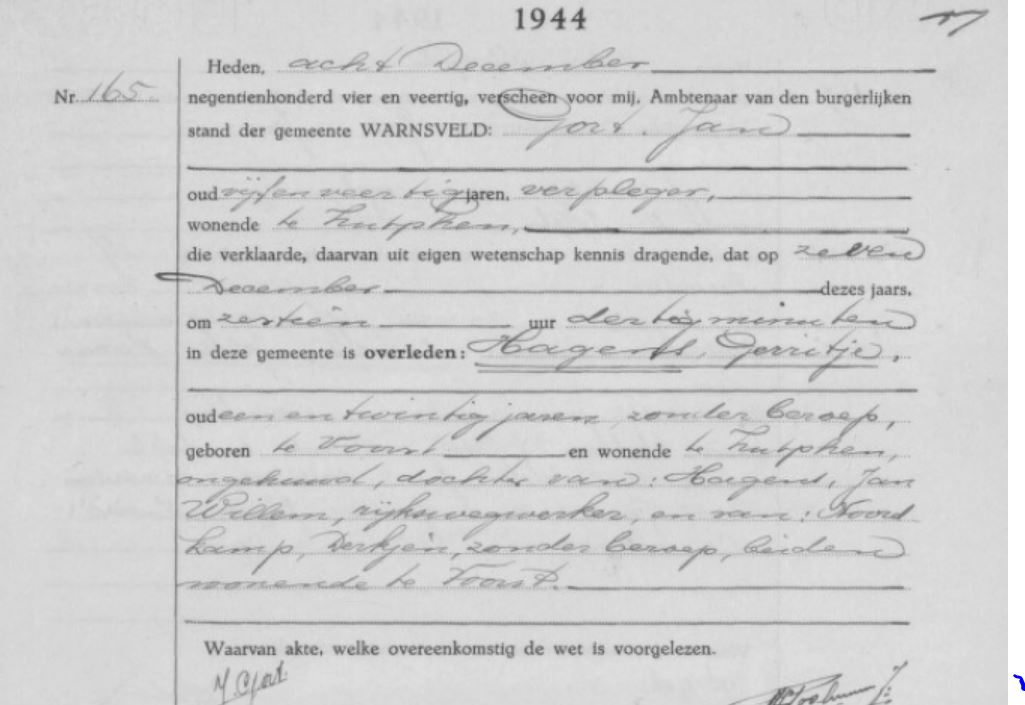 1944
Heden, acht December
Nr. 165. negentienhonderd vier en veertig, verscheen voor mij, Ambtenaar van den burgerlijken
stand der gemeente WARNSVELD: Gort, Jan
oud vijfenveertig jaren, verpleger,
wonende te Zutphen,
die verklaarde, daarvan uit eigen wetenschap kennis dragende, dat op zeven
December dezes jaars,
om zestien uur dertig minuten
in deze gemeente is overleden: Hagens, Gerritje,
oud een en twintig jaren, zonder beroep,
geboren te Voorst en wonende te Zutphen,
ongehuwd, dochter van: Hagens, Jan
Willem, rijkswegwerker, en van: Noord
kamp, Derkjen, zonder beroep, beiden
wonende te Voorst.
Waarvan akte, welke overeenkomstig de wet is voorgelezen.
J. Gort.